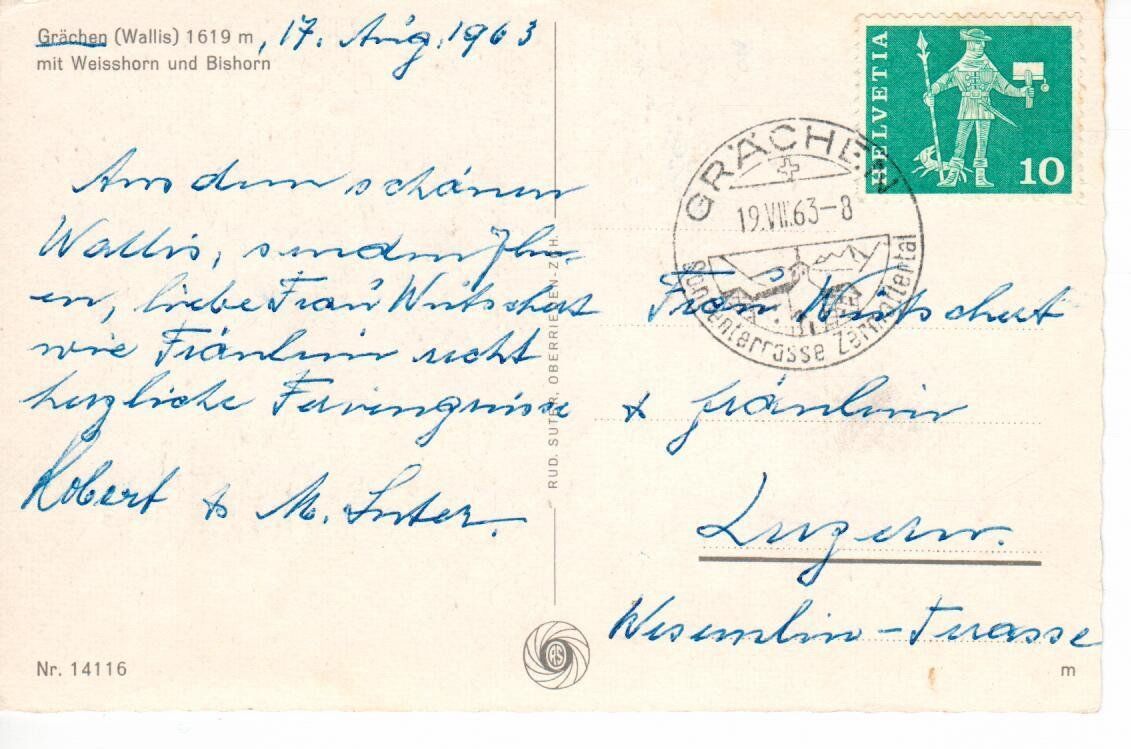 Grächen (Wallis) 1619 m, 17. Aug. 1963
mit Weisshorn und Bishorn
Aus dem schönen
Wallis, senden Ihn-
en, liebe Frau Wütschert
wie Fräulein recht
herzliche Feriengrüsse
Robert & M. Suter.
Nr. 14116
RUD. SUTER, OBERRIEDEN-ZCH.
HELVETIA
10
GRÄCHEN
19.VIII.63-8
Sonnenterrasse Zermattertal
Frau Wütschert
& Fräulein
Luzern.
Wesemlin-Terasse
RS
m